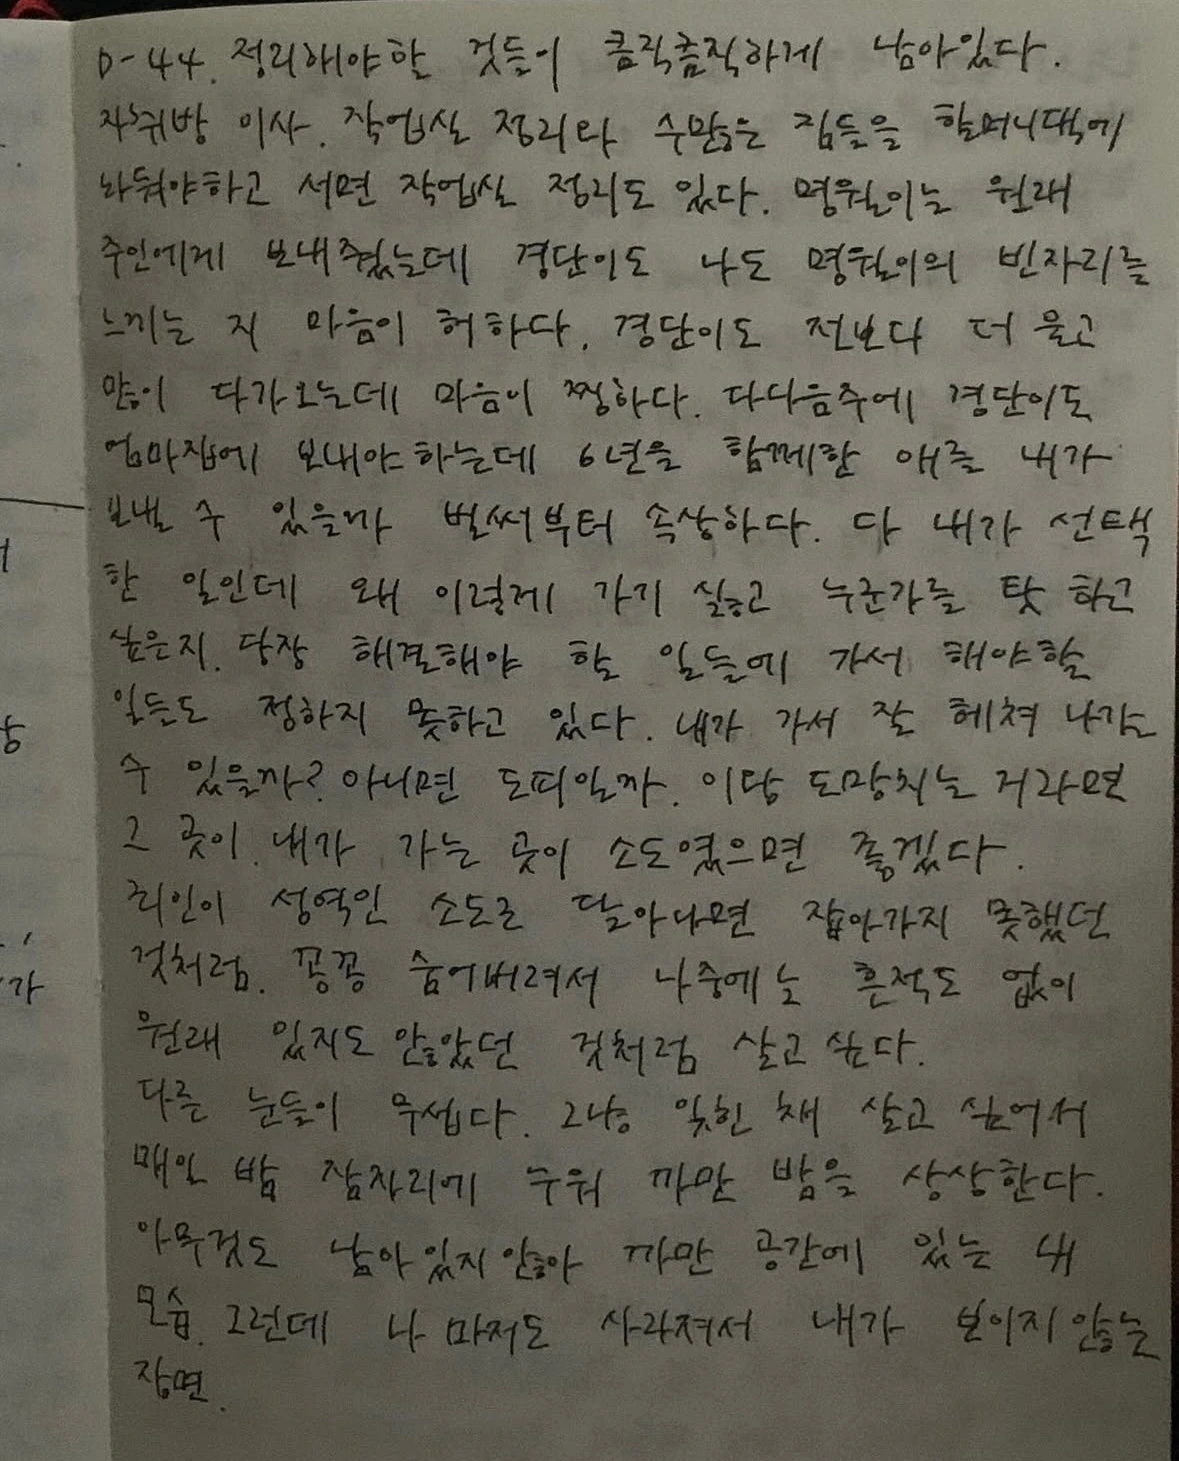 D-44. 정리해야할 것들이 큼직큼직하게 남아있다.
자취방 이사. 작업실 정리와 수많은 짐들을 할머니댁에
놔둬야하고 서면 작업실 정리도 있다. 명월이는 원래
주인에게 보내줬는데 경단이도 나도 명월이의 빈자리를
느끼는 지 마음이 허하다. 경단이도 전보다 더 울고
많이 다가오는데 마음이 찡하다. 다다음주에 경단이도
엄마집에 보내야하는데 6년을 함께한 애를 내가
보낼 수 있을까 벌써부터 속상하다. 다 내가 선택
한 일인데 왜 이렇게 가기 싫고 누군가를 탓 하고
싶은지. 당장 해결해야 할 일들에 가서 해야할
일들도 정하지 못하고 있다. 내가 가서 잘 헤쳐 나갈
수 있을까? 아니면 도피일까. 이왕 도망치는 거라면
그 곳이. 내가 가는 곳이 소도였으면 좋겠다.
죄인이 성역인 소도로 달아나면 잡아가지 못했던
것처럼. 꽁꽁 숨어버려서 나중에는 흔적도 없이
원래 있지도 않았던 것처럼 살고 싶다.
다른 눈들이 무섭다. 그냥 잊힌 채 살고 싶어서
매일 밤 잠자리에 누워 까만 밤을 상상한다.
아무것도 남아있지않아 까만 공간에 있는 내
모습. 그런데 나 마저도 사라져서 내가 보이지않는
장면.